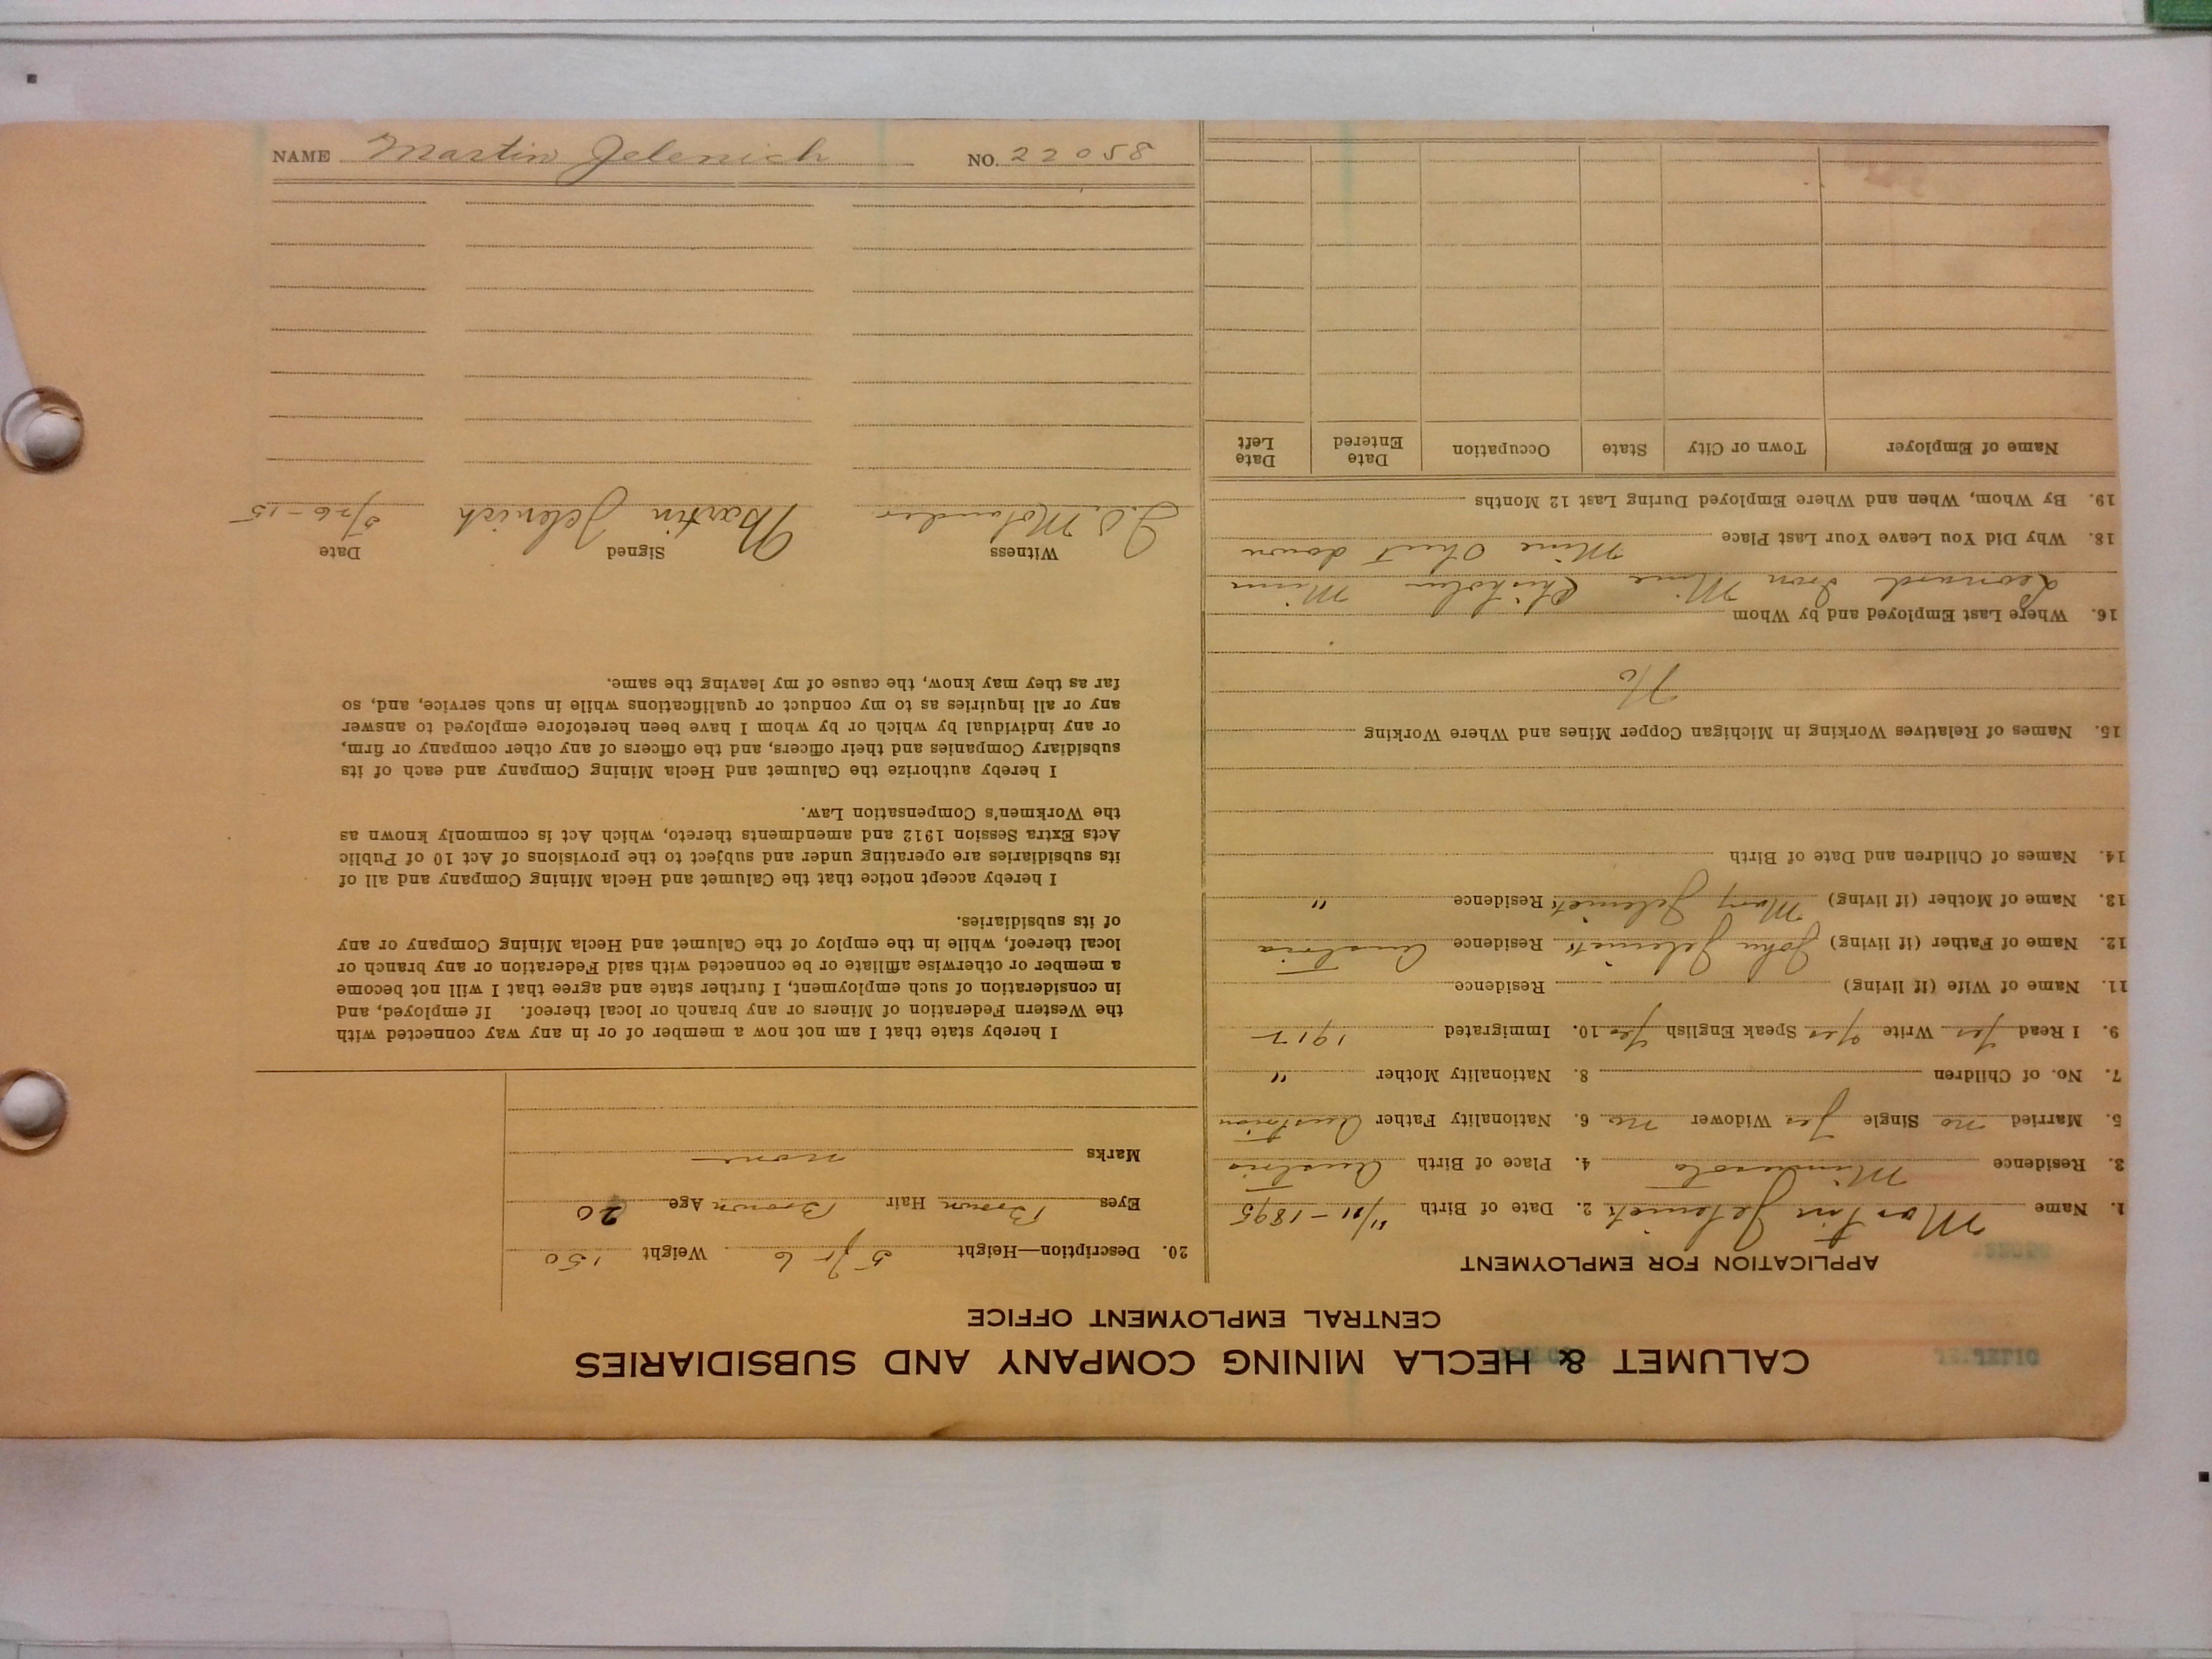 CALUMET & HECLA MINING COMPANY AND SUBSIDIARIES
CENTRAL EMPLOYMENT OFFICE
APPLICATION FOR EMPLOYMENT
1. Name Martin Jelenich 2. Date of Birth 11/11-1895
3. Residence Minnesota 4. Place of Birth Austria
5. Married no Single Yes Widower no 6. Nationality Father Austrian
7. No. of Children 8. Nationality Mother "
9. I Read Yes Write Yes Speak English Yes 10. Immigrated 1912
11. Name of Wife (if living) Residence
12. Name of Father (if living) John Jelenich Residence Austria
13. Name of Mother (if living) Mary Jelenich Residence "
14. Names of Children and Date of Birth
15. Names of Relatives Working in Michigan Copper Mines and Where Working
No
16. Where Last Employed and by Whom
Leonard Iron Mine Chisholm Minn
18. Why Did You Leave Your Last Place Mine Shut down
19. By Whom, When and Where Employed During Last 12 Months
Name of Employer Town or City State Occupation Date Entered Date Left
20. Description—Height 5 ft 6 Weight 150
Eyes Brown Hair Brown Age 20
Marks none
I hereby state that I am not now a member of or in any way connected with
the Western Federation of Miners or any branch or local thereof. If employed, and
in consideration of such employment, I further state and agree that I will not become
a member or otherwise affiliate or be connected with said Federation or any branch or
local thereof, while in the employ of the Calumet and Hecla Mining Company or any
of its subsidiaries.
I hereby accept notice that the Calumet and Hecla Mining Company and all of
its subsidiaries are operating under and subject to the provisions of Act 10 of Public
Acts Extra Session 1912 and amendments thereto, which Act is commonly known as
the Workmen's Compensation Law.
I hereby authorize the Calumet and Hecla Mining Company and each of its
subsidiary Companies and their officers, and the officers of any other company or firm,
or any individual by which or by whom I have been heretofore employed to answer
any or all inquiries as to my conduct or qualifications while in such service, and, so
far as they may know, the cause of my leaving the same.
Witness Signed Date
Molander Martin Jelenich 5/26-15
NAME Martin Jelenich NO. 22058